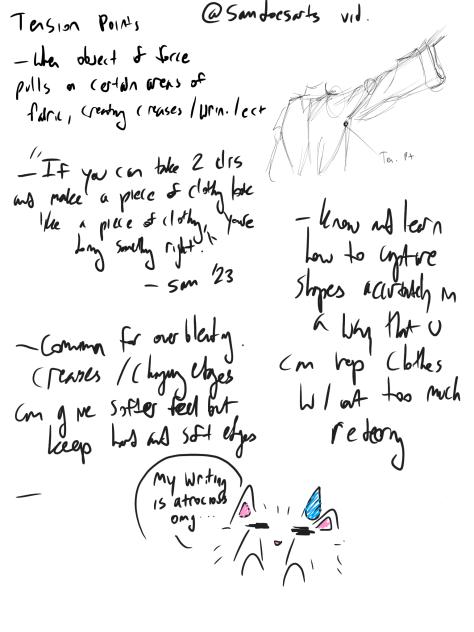 Tension Points
@samdoesarts vid.
— When object of force
pulls on certain areas of
fabric, creating creases/wrin./ect
Ten. Pt
— "If you can take 2 clrs
and make a piece of clothing look
like a piece of clothing, you're
doing something right."
— Sam '23
— Know and learn
how to capture
shapes accurately in
a way that u
can rep clothes
w/out too much
— Common for over blending.
creases/changing edges
can give softer feel but
keep hard and soft edges
—
My writing
is atrocious
omg...